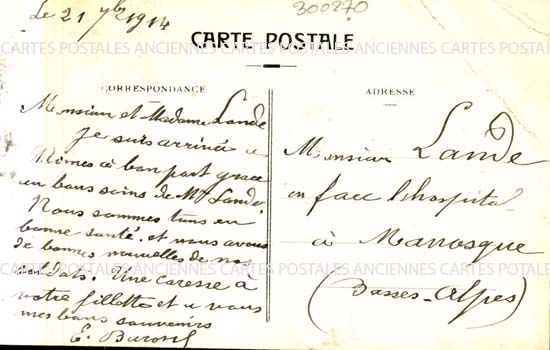 Le 21 7bre 1914
300270
CARTE POSTALE
CARTES POSTALES ANCIENNES CARTES POSTALES ANCIENNES CARTES POSTALES ANCIENNES
CORRESPONDANCE
Monsieur et Madame Lande
Je suis arrivée a
Nimes à bon port grace
au bons soins de Mr Lande.
Nous sommes tous en
bonne santé. et nous avons
de bonnes nouvelles de nos
soldats. Une caresse à
votre fillette et a vous
mes bons souvenirs
E.
ADRESSE
Monsieur Lande
en face l'hospital
à Manosque
(Basses-Alpes)
CARTES POSTALES ANCIENNES CARTES POSTALES ANCIENNES CARTES POTALES ANCIENNES